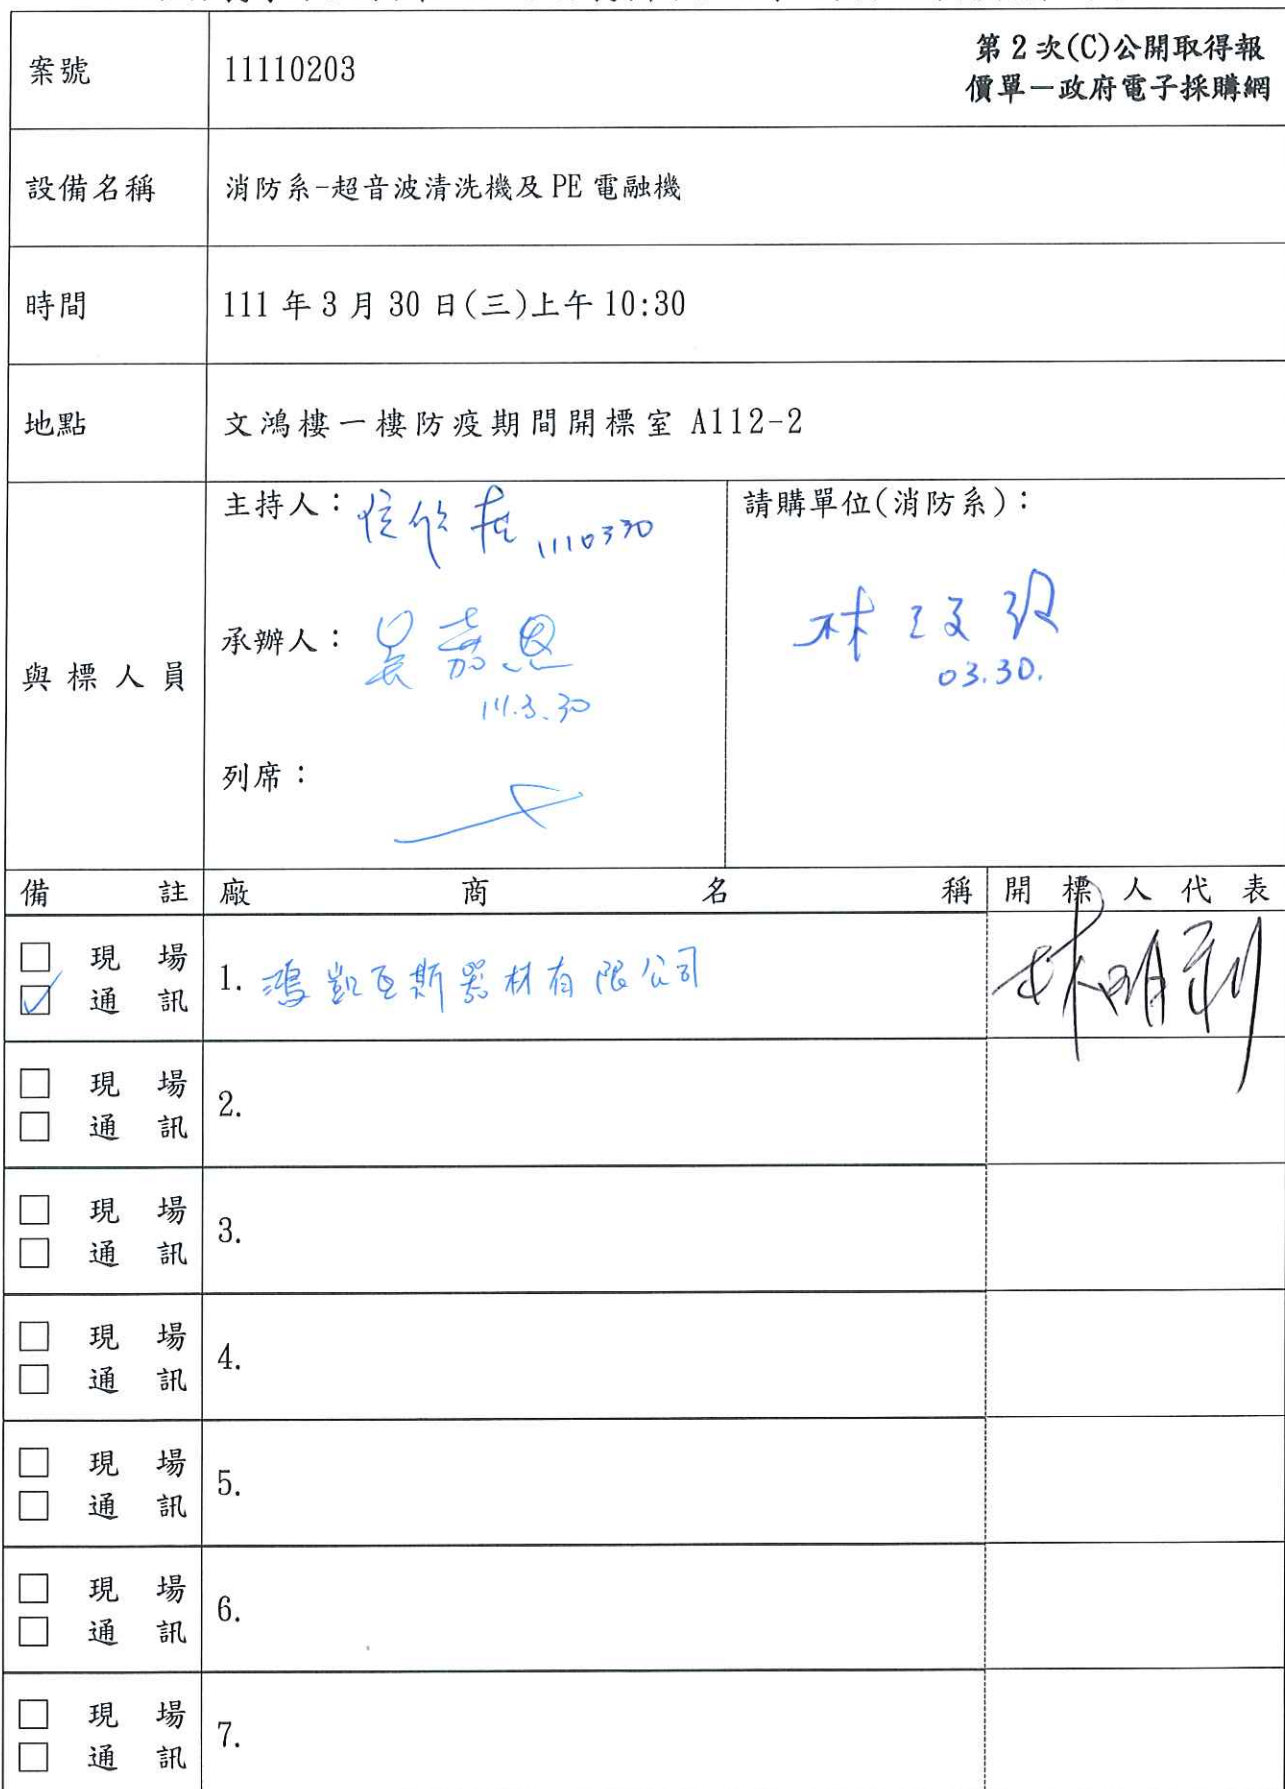 案號 11110203 第2次(C)公開取得報
價單－政府電子採購網
設備名稱 消防系-超音波清洗機及PE電融機
時間 111年3月30日(三)上午10:30
地點 文鴻樓一樓防疫期間開標室 A112-2
與標人員
主持人： 1110330
承辦人：吳嘉恩
111.3.30
列席：
請購單位(消防系)：
林
03.30.
備註 廠商名稱 開標人代表
□ 現場
☑ 通訊
1. 鴻凱瓦斯器材有限公司
林明利
□ 現場
□ 通訊
2.
□ 現場
□ 通訊
3.
□ 現場
□ 通訊
4.
□ 現場
□ 通訊
5.
□ 現場
□ 通訊
6.
□ 現場
□ 通訊
7.